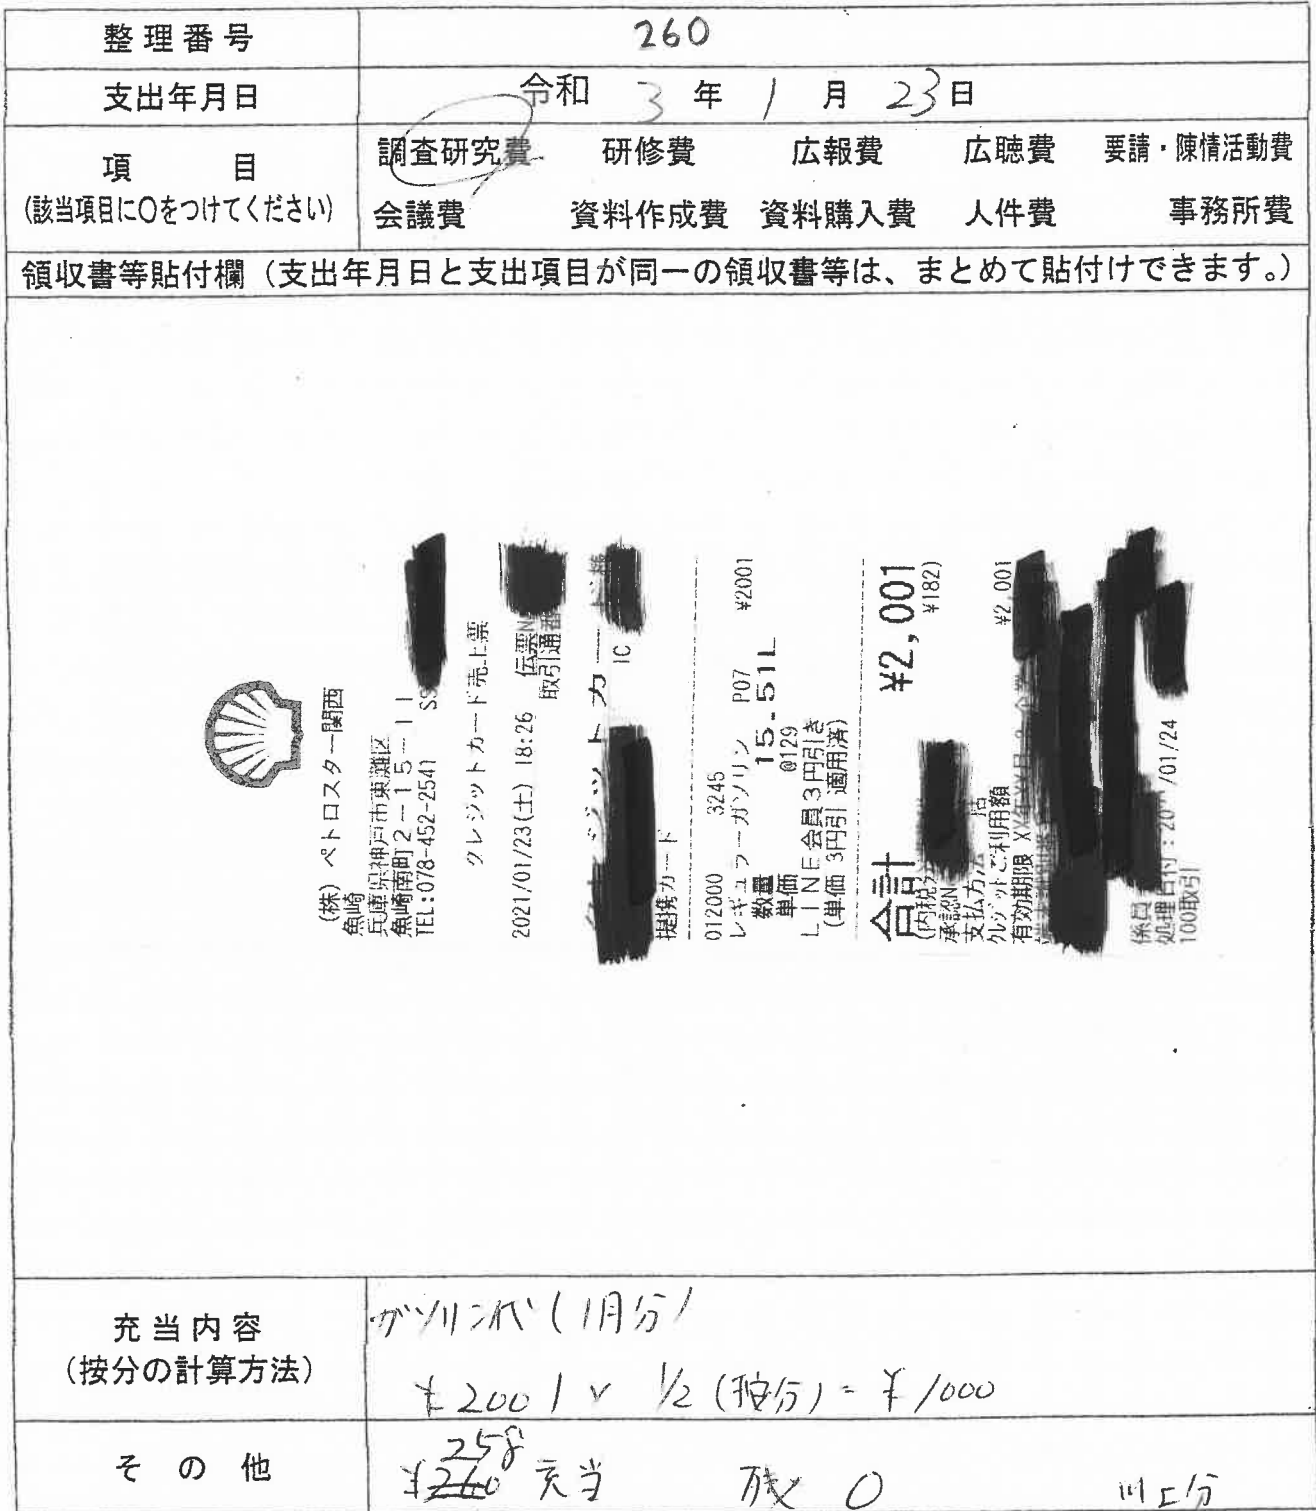 整理番号 260
支出年月日 令和 3 年 1 月 23 日
項 目 調査研究費 研修費 広報費 広聴費 要請・陳情活動費
(該当項目に○をつけてください) 会議費 資料作成費 資料購入費 人件費 事務所費
領収書等貼付欄(支出年月日と支出項目が同一の領収書等は、まとめて貼付けできます。)
(株) ペトロスター関西
魚崎
兵庫県神戸市東灘区
魚崎南町2-15-11
TEL:078-452-2541 SS
クレジットカード売上票
2021/01/23(土) 18:26 伝票N
取引通番
クレジットカード
IC
提携カード
012000 3245
レギュラーガソリン P07 ¥2001
数量 15.51L
単価 @129
LINE会員3円引き
(単価 3円引 適用済)
合計 ¥2,001
(内税 ¥182)
承認N
支払方法
クレジットご利用額 ¥2,001
有効期限
係員
処理日付:20 /01/24
100取引
充当内容 ガソリン代(1月分)
(按分の計算方法) ¥2001 × 1/2 (按分) = ¥1000
258
その他 ¥260 充当 残 0